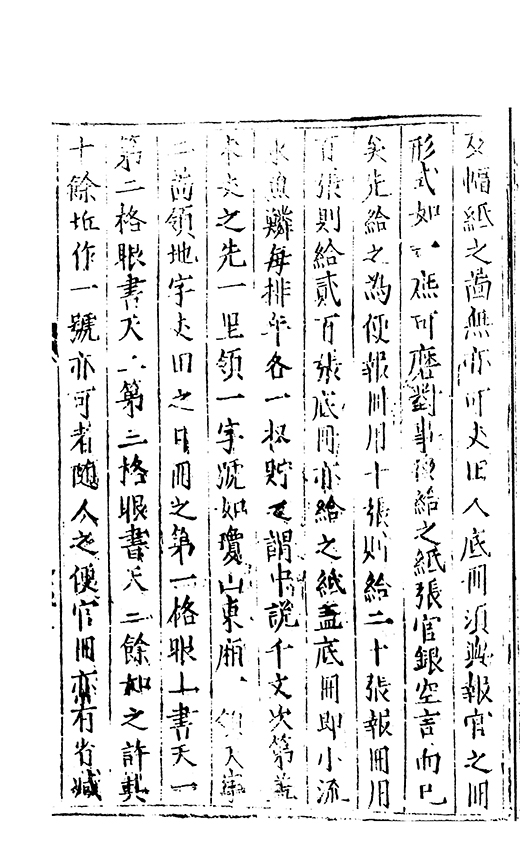 及幅紙之啚無亦可丈田人底冊須與報官之冊
形式如一庶可磨對事預給之紙張官銀空言而已
矣先給之為便報冊用十張則給二十張報冊用
百張則給貳百張底冊亦給之紙蓋底冊即小流
水魚鱗每排年各一扣貯 謂中說千文次第蓋
未丈之先一里領一字號如瓊山東廂 領天字
二啚領地字丈田之日冊之第一格眼上書天一
第二格眼書天二第三格眼書天三餘如之許其
十餘坵作一號亦可者隨人之便官冊亦有省減